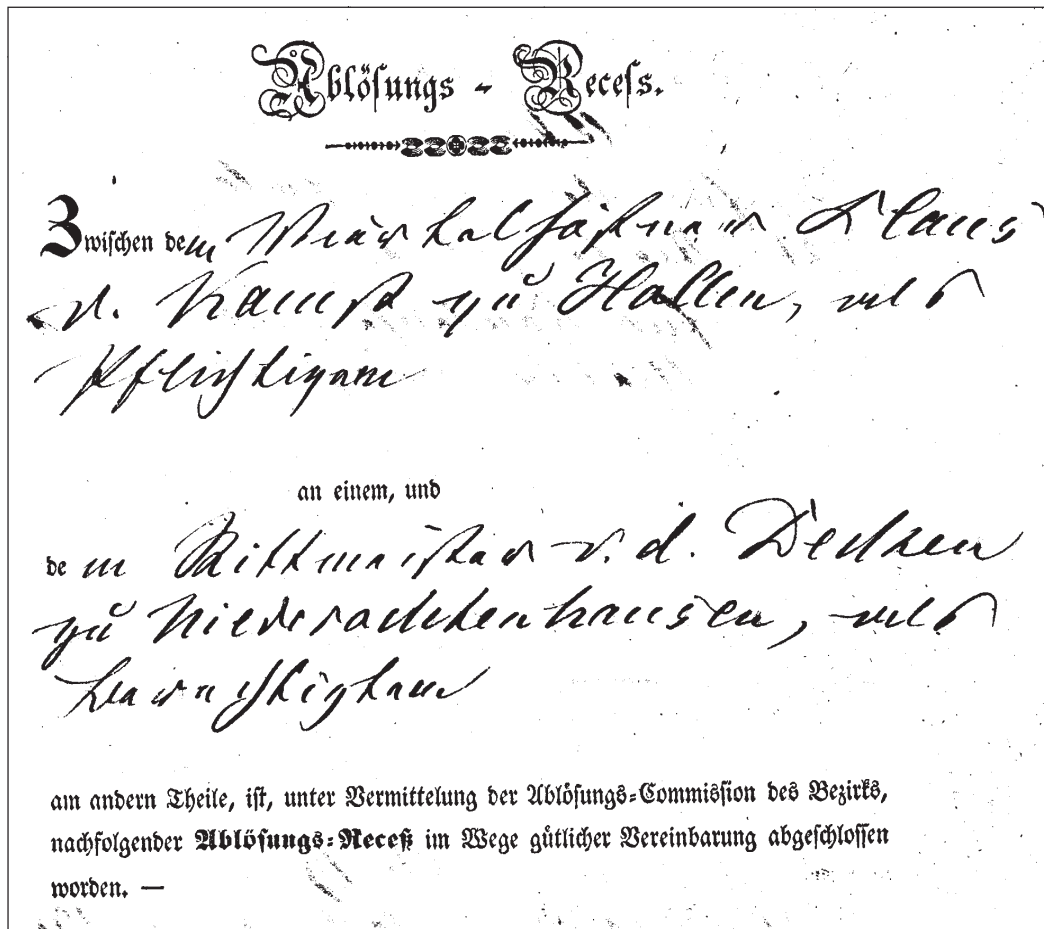 Ablösungs - Recess.
Zwischen dem Viertelhöfner Claus
v. Kampf zu Hollen, als
Pflichtigem
an einem, und
dem Rittmeister v. d. Decken
zu Niederochtenhausen, als
Berechtigtem
am andern Theile, ist, unter Vermittelung der Ablösungs-Commission des Bezirks,
nachfolgender Ablösungs-Receß im Wege gütlicher Vereinbarung abgeschlossen
worden. —